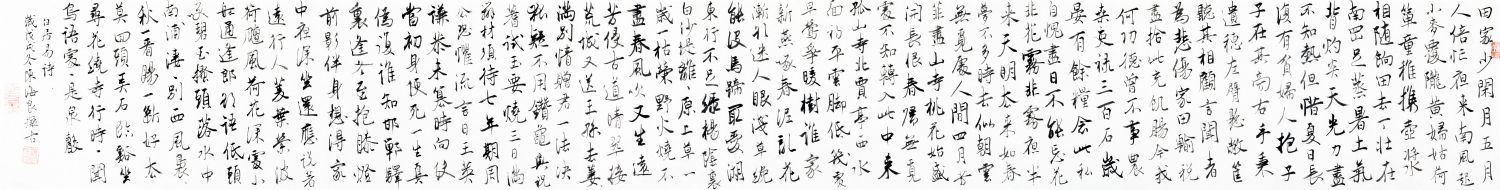 田家少閑月五月
人倍忙夜來南風起
小麥覆隴黃婦姑荷
簞童稚攜壺漿
相隨餉田去丁壯在
南岡足蒸暑土氣
背灼炎天光力盡
不知熱但惜夏日長
復有貧婦人抱子
子在其旁右手秉
遺穗左臂懸敝筐
聽其相顧言聞者
為悲傷家田輸稅
盡拾此充飢腸今我
何功德曾不事農
桑吏祿三百石歲
晏有餘糧念此私
自愧盡日不能忘花
非花霧非霧夜半
來天明去來如春
夢不多時去似朝雲
無覓處人間四月芳
菲盡山寺桃花始盛
開長恨春歸無覓
處不知轉入此中來
孤山寺北賈亭西水
面初平雲腳低幾處
早鶯爭暖樹誰家
新燕啄春泥亂花
漸欲迷人眼淺草纔
能沒馬蹄最愛湖
東行不足綠楊陰裏
白沙堤離、原上草一
歲一枯榮野火燒不
盡春風吹又生遠
芳侵古道晴翠接
荒城又送王孫去萋
滿別情贈君一法決
狐疑不用鑽龜與祝
蓍試玉要燒三日滿
辨材須待七年期周
公恐懼流言日王莽
謙恭未篡時向使
當初身便死一生真
偽復誰知邯鄲驛
裏逢冬至抱膝燈
前影伴身想得家
中夜深坐還應說著
遠行人菱葉縈波
荷颭風荷花深處小
船通逢郎欲語低頭
笑碧玉搔頭落水中
南浦淒、別西風裊、
秋一看腸一斷好去
莫回頭弄石臨谿坐
尋花繞寺行時、聞
鳥語處、是泉聲
白居易詩
歲戊戌冬陳海良書